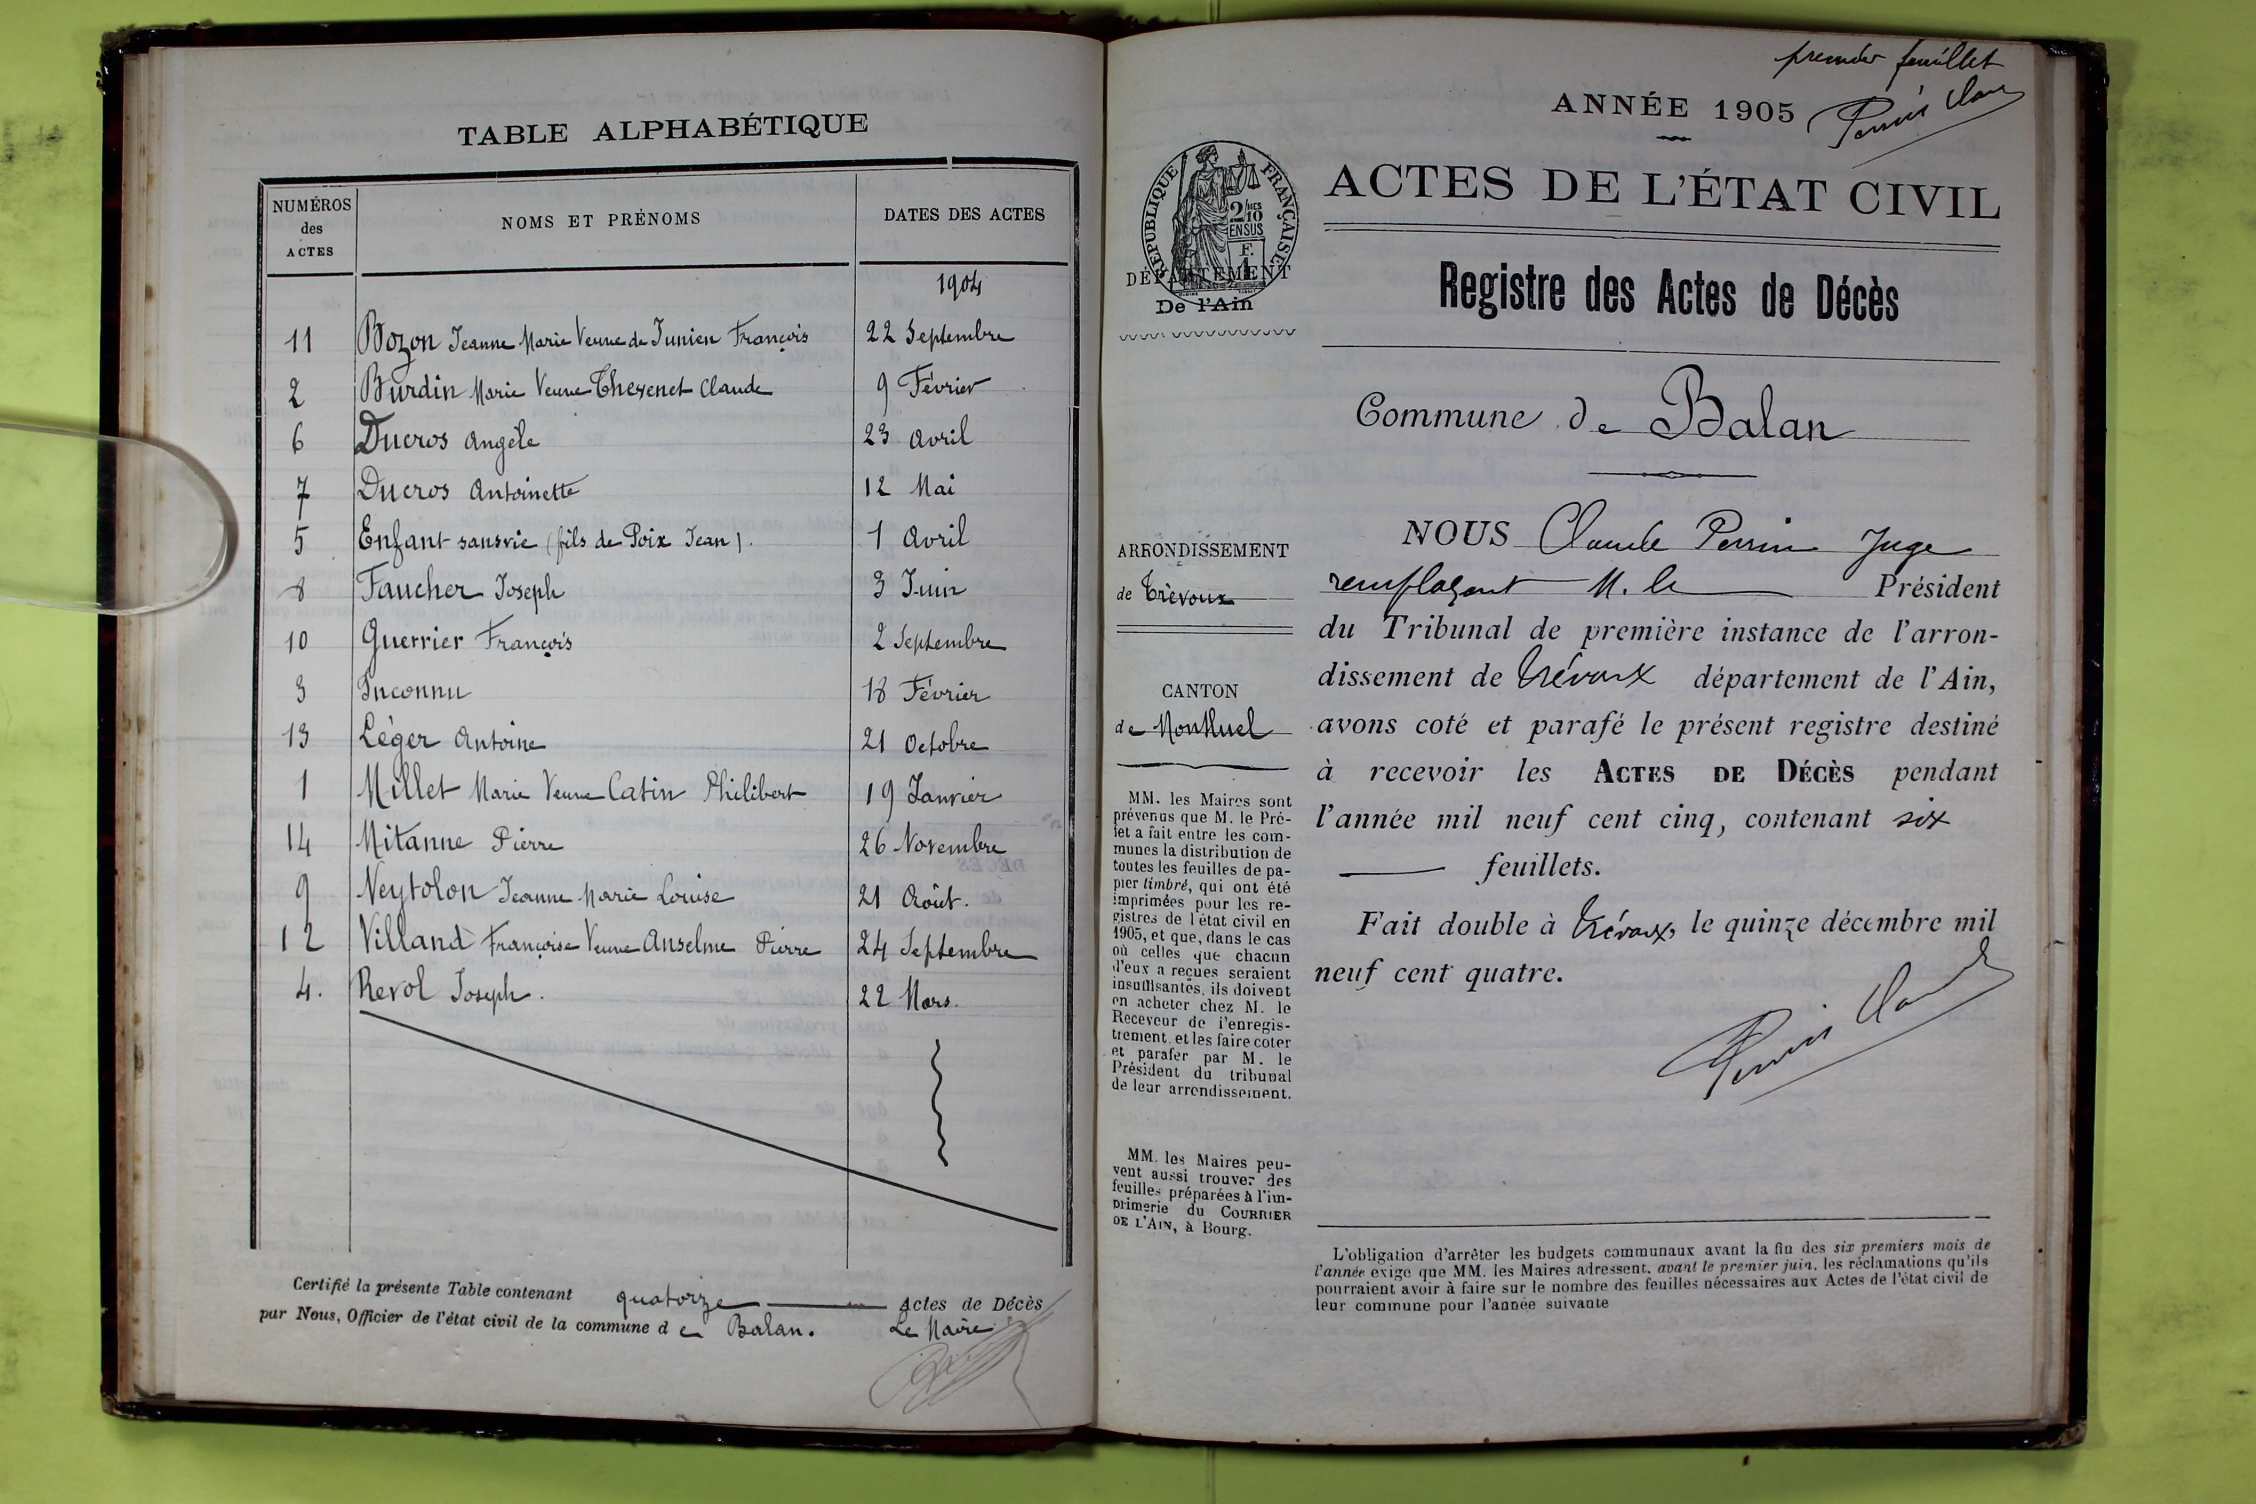 TABLE ALPHABÉTIQUE
NUMÉROS des ACTES NOMS ET PRÉNOMS DATES DES ACTES
1904
11 Bozon Jeanne Marie Veuve de Junien François 22 Septembre
2 Burdin Marie Veuve Thevenet Claude 9 Février
6 Ducros Angèle 23 Avril
7 Ducros Antoinette 12 Mai
5 Enfant sans vie (fils de Poix Jean). 1 Avril
8 Faucher Joseph 3 Juin
10 Guerrier François 2 Septembre
3 Inconnu 18 Février
13 Léger Antoine 21 Octobre
1 Millet Marie Veuve Catin Philibert 19 Janvier
14 Mitanne Pierre 26 Novembre
9 Neytolon Jeanne Marie Louise 21 Août.
12 Villand Françoise Veuve Anselme Pierre 24 Septembre
4. Revol Joseph. 22 Mars.
Certifié la présente Table contenant quatorze Actes de Décès
par Nous, Officier de l'état civil de la commune de Balan. Le Maire
premier feuillet
ANNÉE 1905
Perrin Claude
ACTES DE L'ÉTAT CIVIL
RÉPUBLIQUE FRANÇAISE
2/10
EN SUS
F.
1
DÉPARTEMENT
De l'Ain
Registre des Actes de Décès
Commune de Balan
ARRONDISSEMENT
de Trévoux
CANTON
de Montluel
MM. les Maires sont
prévenus que M. le Pré-
fet a fait entre les com-
munes la distribution de
toutes les feuilles de pa-
pier timbré, qui ont été
imprimées pour les re-
gistres de l'état civil en
1905, et que, dans le cas
où celles que chacun
d'eux a reçues seraient
insuffisantes, ils doivent
en acheter chez M. le
Receveur de l'enregis-
trement et les faire coter
et parafer par M. le
Président du tribunal
de leur arrondissement.
MM. les Maires peu-
vent aussi trouver des
feuilles préparées à l'im-
primerie du COURRIER
DE L'AIN, à Bourg.
NOUS Claude Perrin Juge
remplaçant M. le Président
du Tribunal de première instance de l'arron-
dissement de Trévoux département de l'Ain,
avons coté et parafé le présent registre destiné
à recevoir les ACTES DE DÉCÈS pendant
l'année mil neuf cent cinq, contenant six
feuillets.
Fait double à Trévoux, le quinze décembre mil
neuf cent quatre.
Perrin Claude
L'obligation d'arrêter les budgets communaux avant la fin des six premiers mois de
l'année exige que MM. les Maires adressent, avant le premier juin, les réclamations qu'ils
pourraient avoir à faire sur le nombre des feuilles nécessaires aux Actes de l'état civil de
leur commune pour l'année suivante